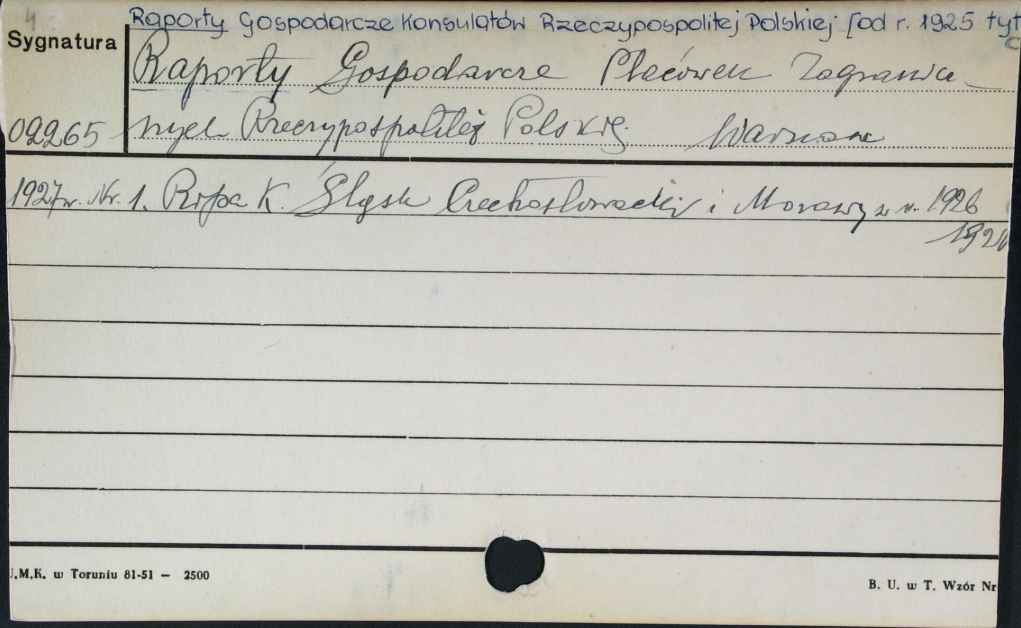 Raporty Gospodarcze Konsulatów Rzeczypospolitej Polskiej [od r. 1925 tyt
Sygnatura
Raporty Gospodarcze Placówek Zagranicz-
02265 nych Rzeczypospolitej Polskiej. Warszawa
1927r. Nr. 1. Ropa K. Śląsk Czechosłowacki i Morawy w r. 1926
1926
U.M.K. w Toruniu 81-51 — 2500
B. U. w T. Wzór Nr